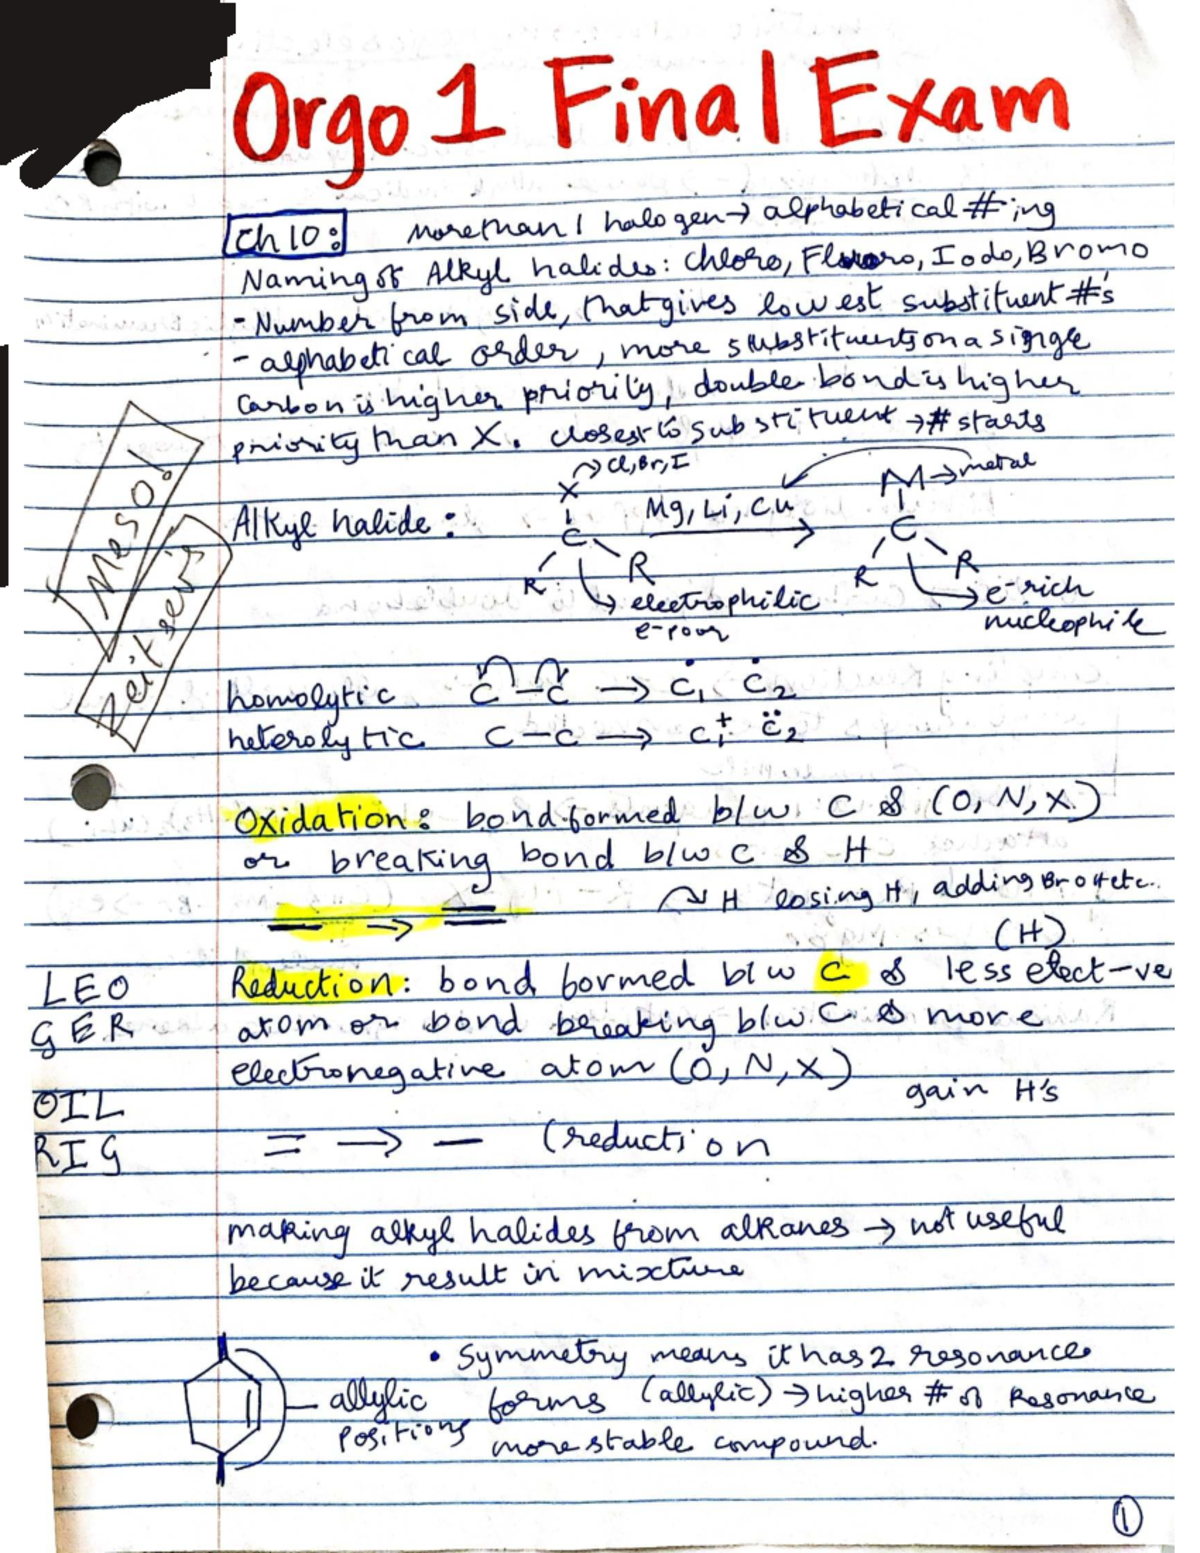 Orgo 1 Final Exam
Ch 10: More than 1 halogen → alphabetical #ing
Naming of Alkyl halides: Chloro, Fluoro, Iodo, Bromo
- Number from side, that gives lowest substituent #'s
- alphabetical order, more substituents on a single
Carbon is higher priority, double bond is higher
priority than X. closest to substituent → # starts
Meso!
zeitsev's
Alkyl halide:
X → Cl, Br, I
C
R R
→ electrophilic
e-poor
Mg, Li, Cu
M → metal
C
R R
→ e-rich
nucleophile
homolytic C-C → Ċ₁ Ċ₂
heterolytic C-C → C₁⁺ C̈₂
Oxidation: bond formed b/w C & (O, N, X)
or breaking bond b/w C & H
→ H losing H, adding Br off etc.
— → =
(H)
LEO Reduction: bond formed b/w C & less elect-ve
GER atom or bond breaking b/w C & more
electronegative atom (O, N, X)
gain H's
OIL
RIG = → — (reduction
making alkyl halides from alkanes → not useful
because it result in mixture
allylic
positions
• Symmetry means it has 2 resonance
forms (allylic) → higher # of Resonance
more stable compound.
1